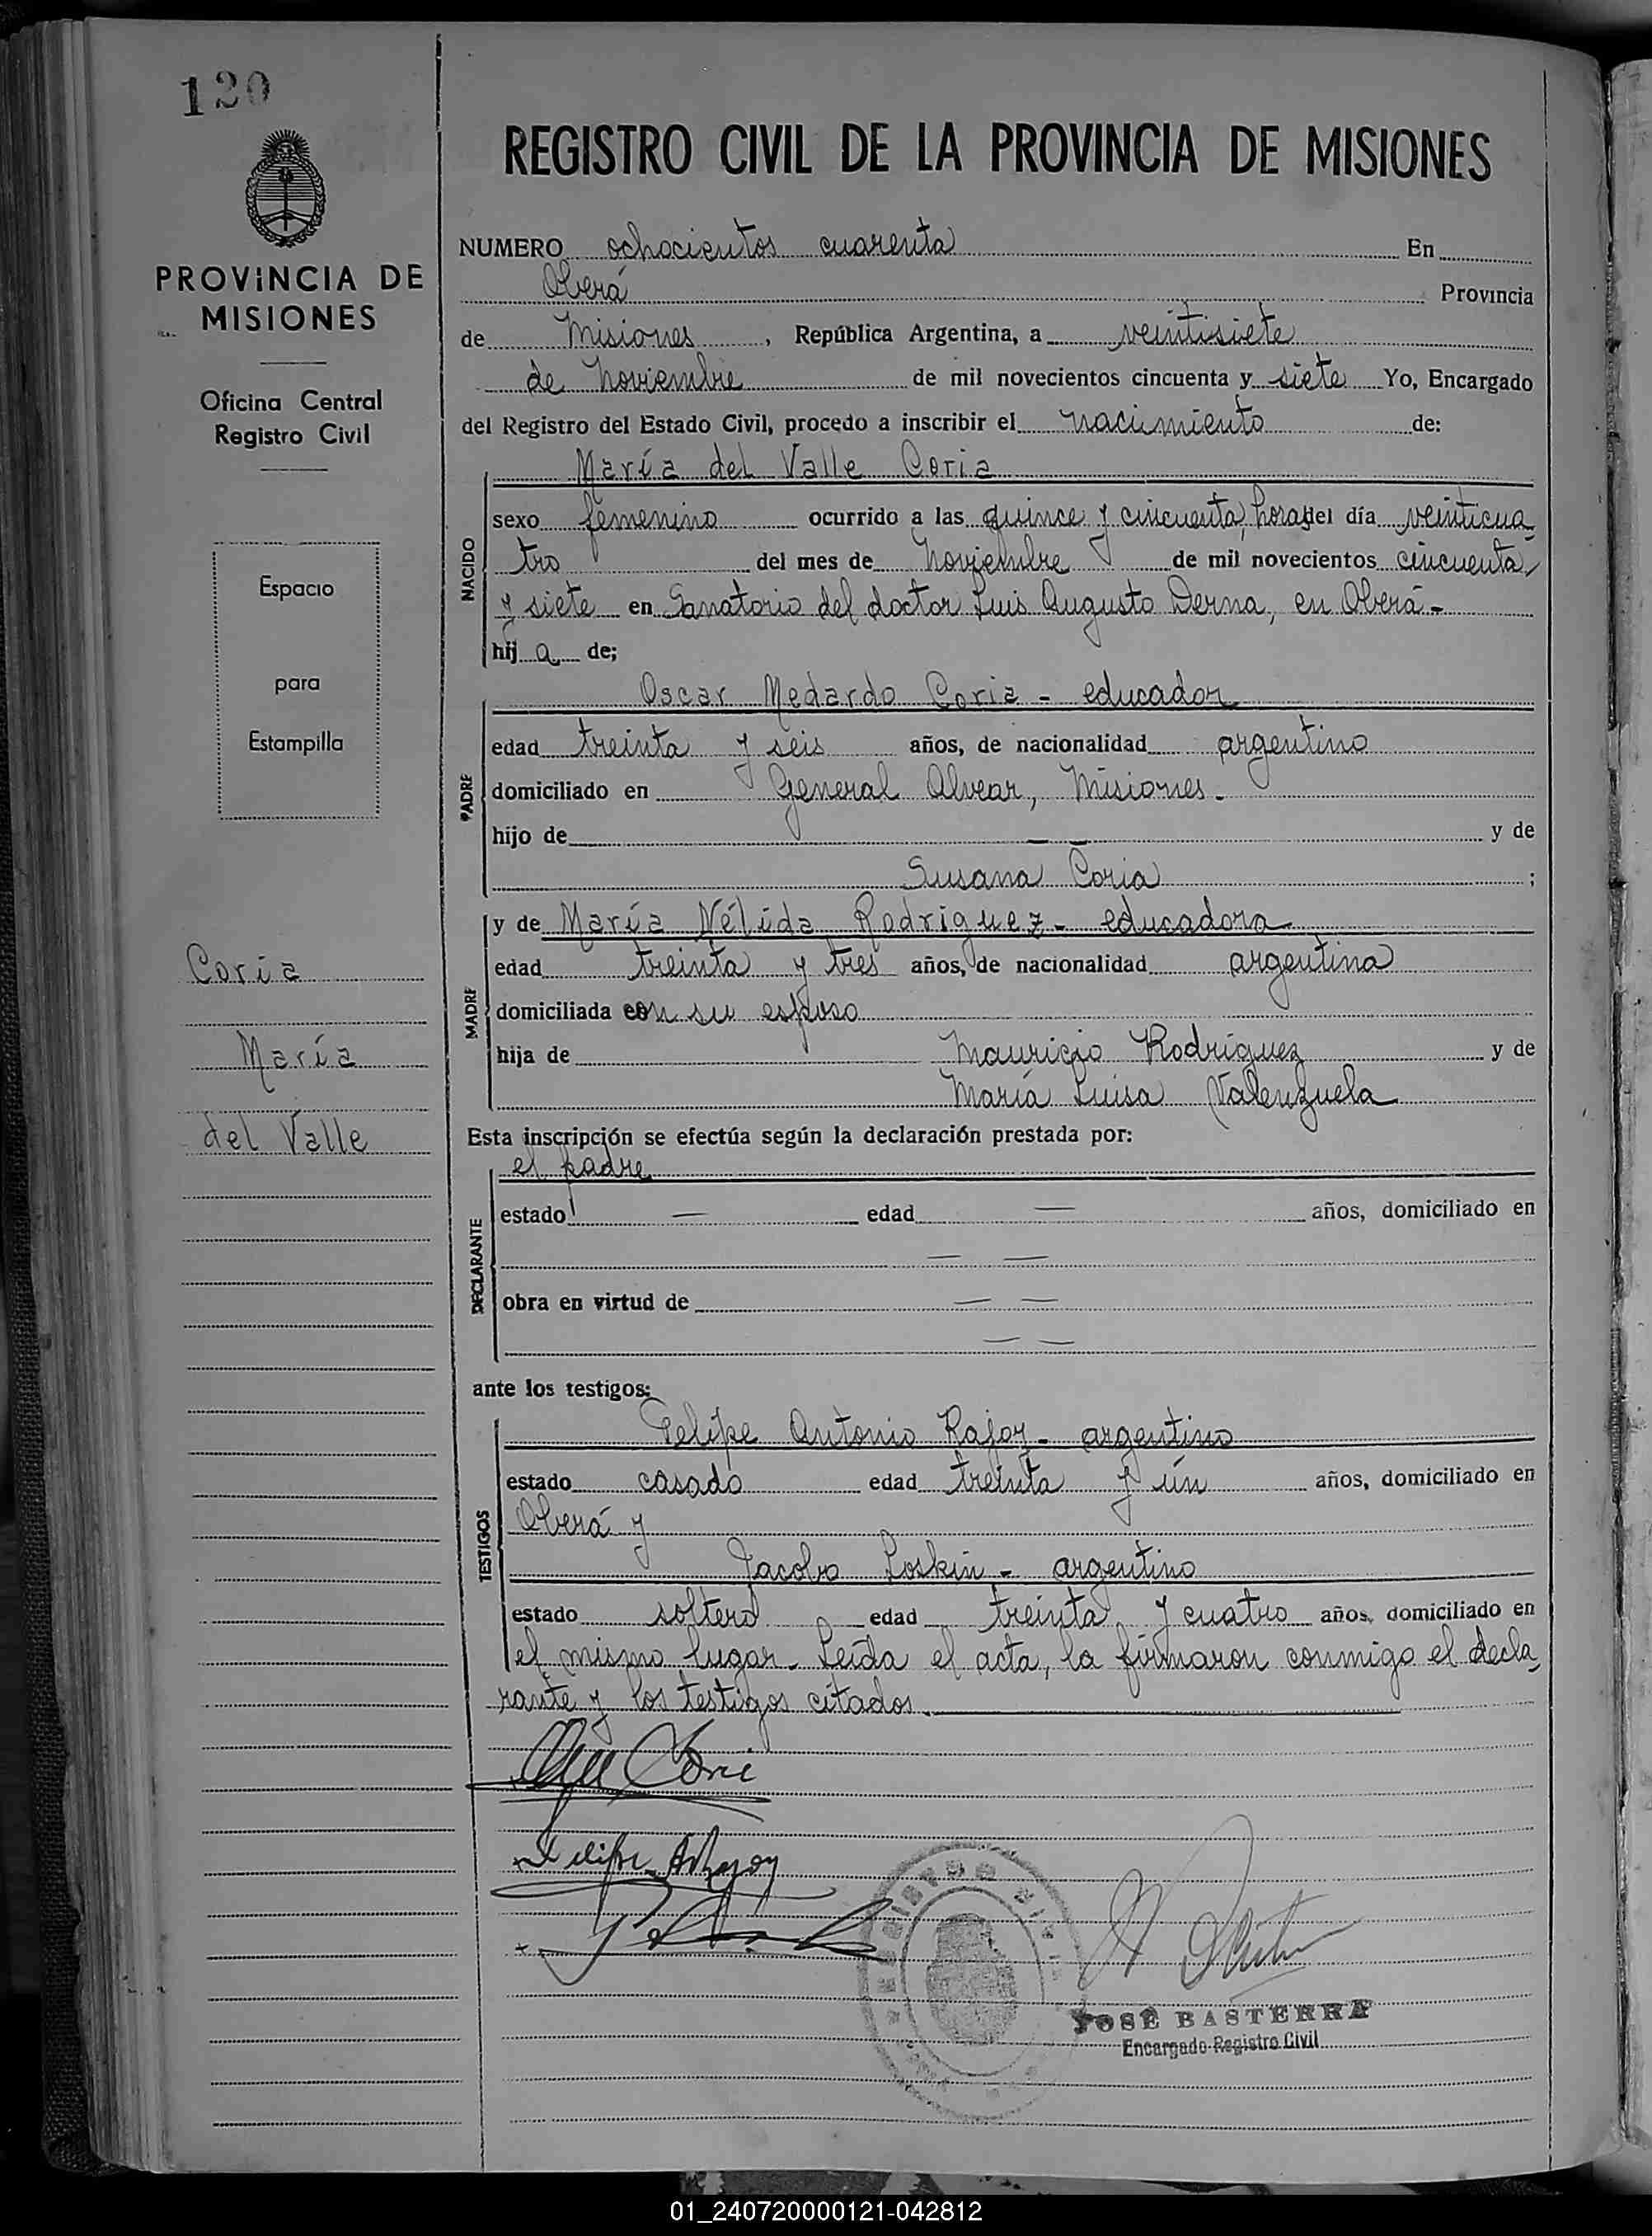 120
PROVINCIA DE
MISIONES
Oficina Central
Registro Civil
Espacio
para
Estampilla
Coria
María
del Valle
REGISTRO CIVIL DE LA PROVINCIA DE MISIONES
NUMERO ochocientos cuarenta En
Oberá Provincia
de Misiones, República Argentina, a veintisiete
de Noviembre de mil novecientos cincuenta y siete Yo, Encargado
del Registro del Estado Civil, procedo a inscribir el nacimiento de:
María del Valle Coria
NACIDO
sexo femenino ocurrido a las quince y cincuenta horas del día veinticua-
tro del mes de Noviembre de mil novecientos cincuenta
y siete en Sanatorio del doctor Luis Augusto Derna, en Oberá-
hij a de;
PADRE
Oscar Medardo Coria - educador
edad treinta y seis años, de nacionalidad argentino
domiciliado en General Alvear, Misiones.
hijo de — — y de
Susana Coria ;
MADRE
y de María Nélida Rodriguez - educadora
edad treinta y tres años, de nacionalidad argentina
domiciliada con su esposo
hija de Mauricio Rodríguez y de
María Luisa Valenzuela
Esta inscripción se efectúa según la declaración prestada por:
el padre
DECLARANTE
estado — edad — años, domiciliado en
— —
obra en virtud de — —
— —
ante los testigos:
TESTIGOS
Felipe Antonio Rajoy - argentino
estado casado edad treinta y un años, domiciliado en
Oberá y
Jacobo Loskin - argentino
estado soltero edad treinta y cuatro años, domiciliado en
el mismo lugar. Leída el acta, la firmaron conmigo el decla-
rante y los testigos citados.
Coria
Felipe A Rajoy
REGISTRO
JOSÉ BASTERRA
Encargado Registro Civil
01_240720000121-042812